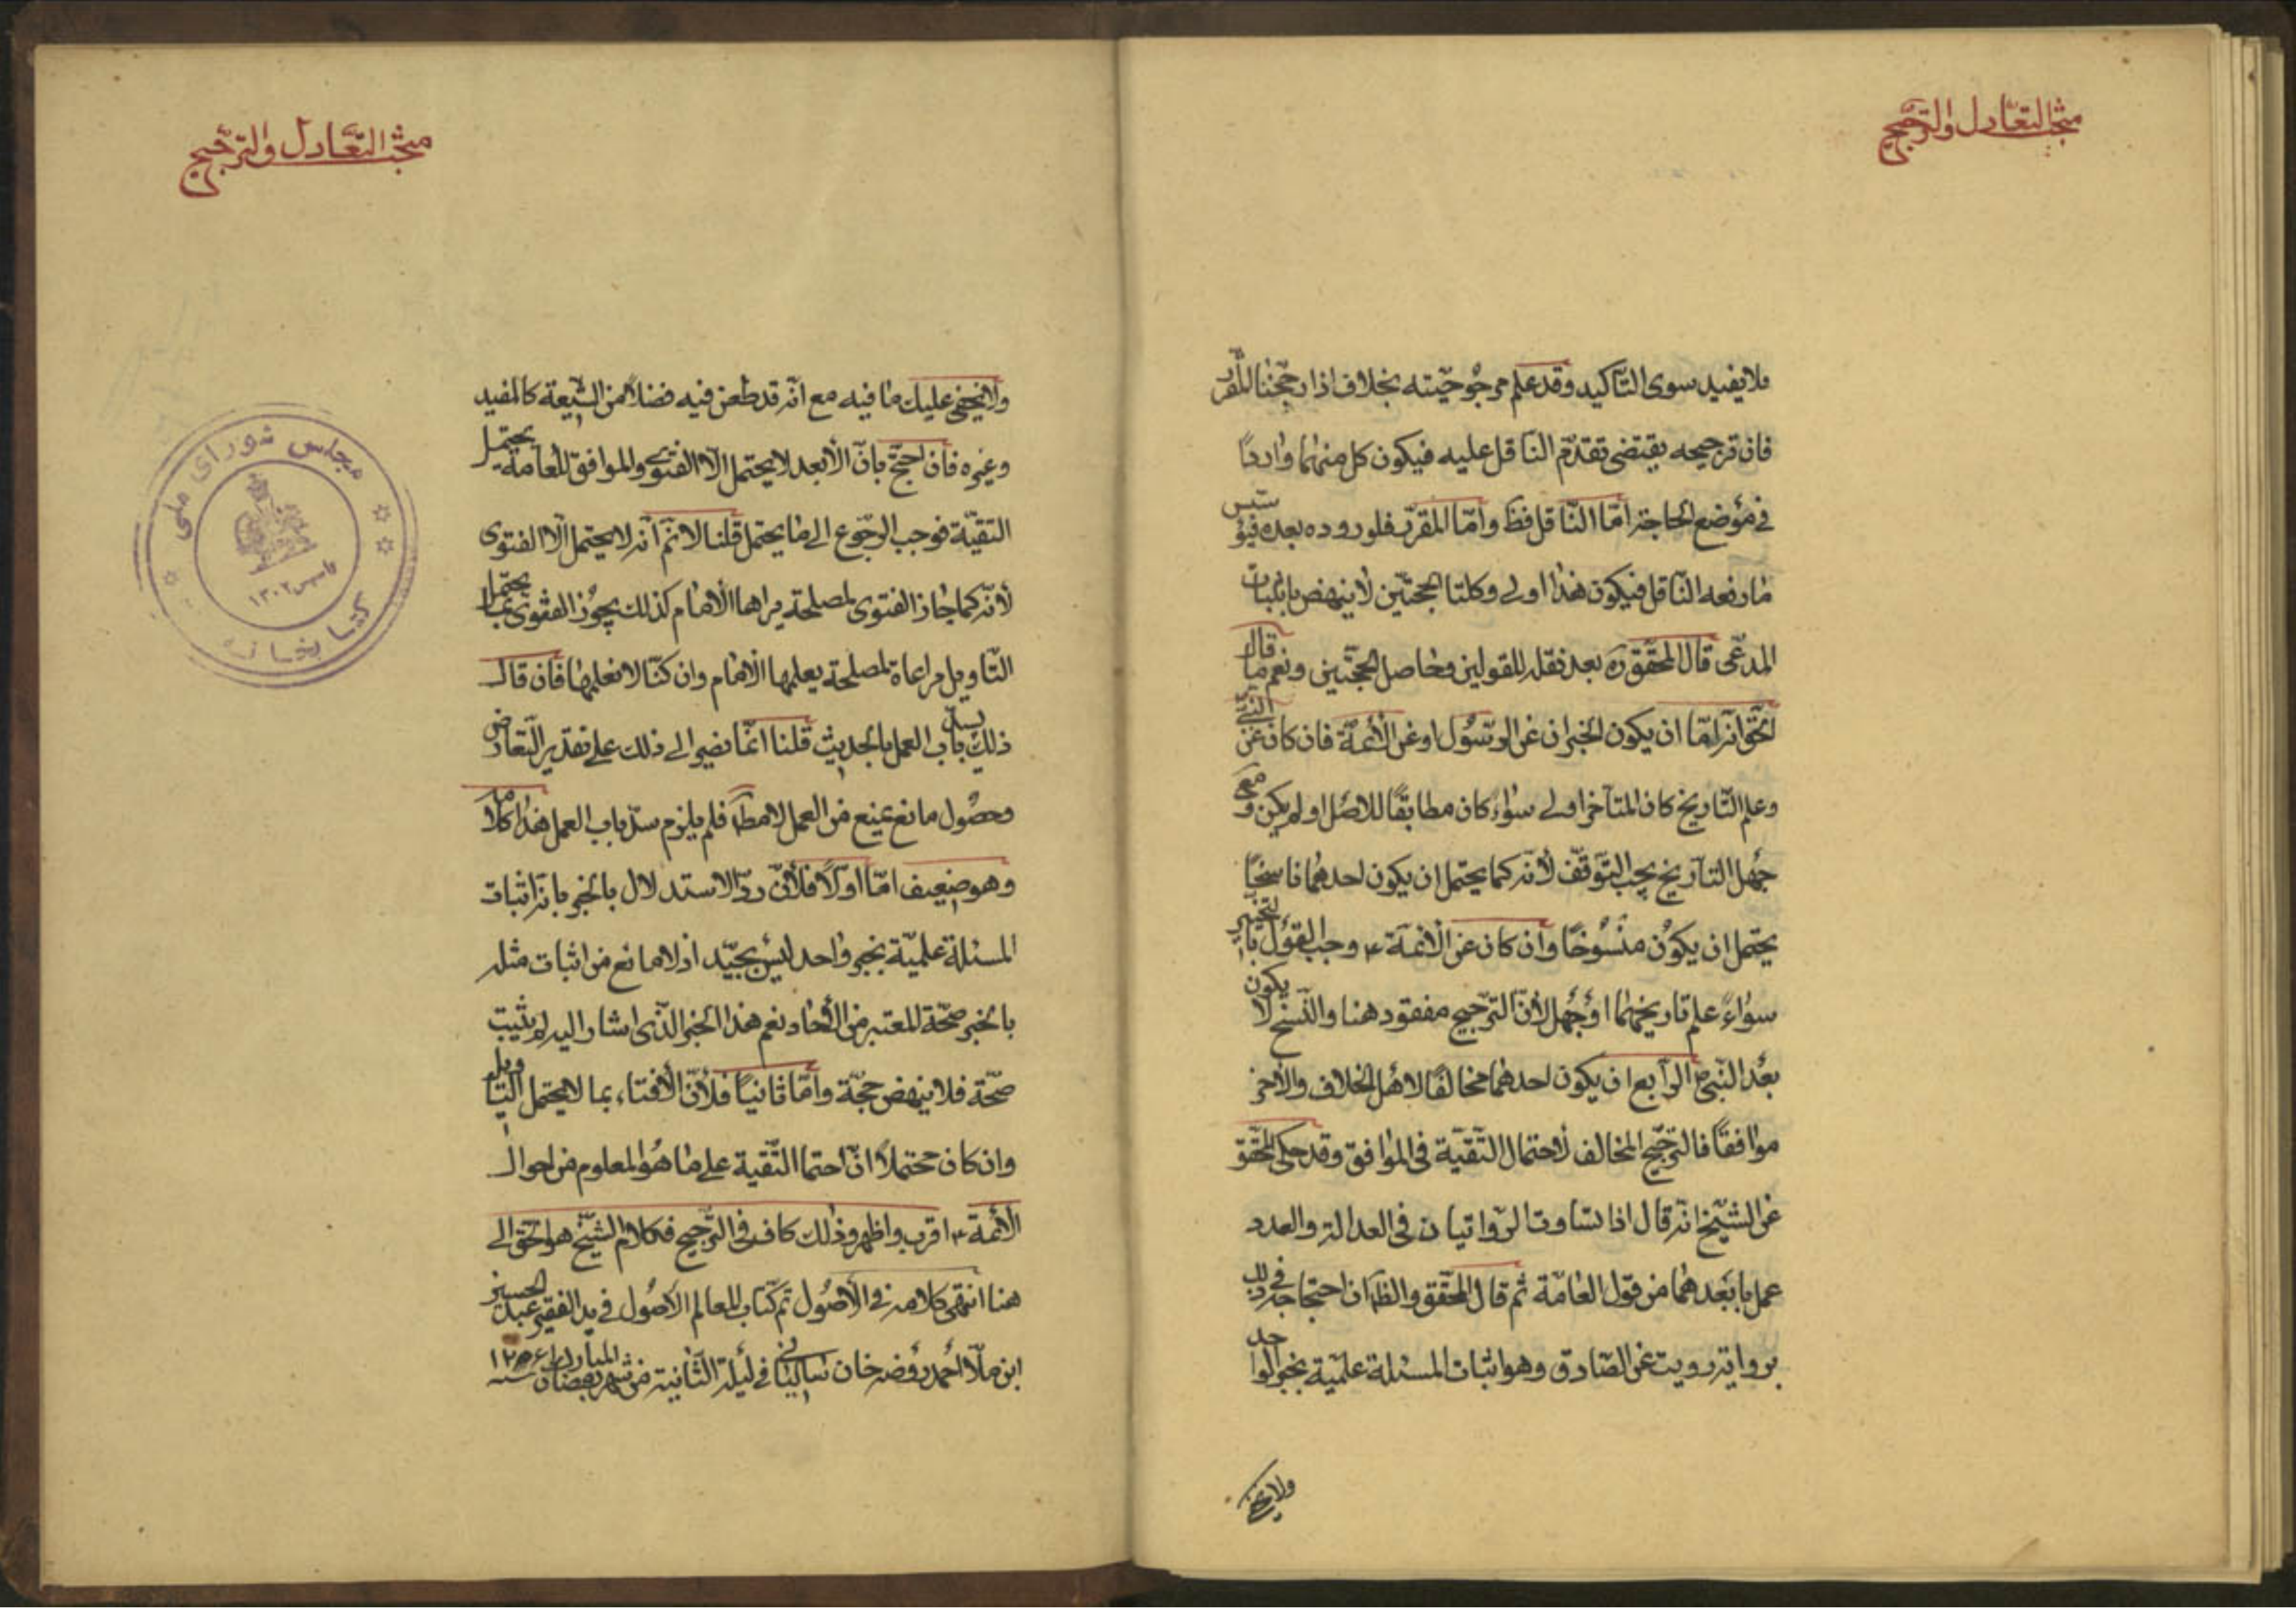 مبحث التعادل والترجيح
فلا يفيد سوى التأكيد وقد علم مرجوحيّته بخلاف اذا رجّحنا المقرّر
فان ترجيحه يقتضى تقدّم الناقل عليه فيكون كل منهما واردًا
فى موضع الحاجة امّا الناقل فظ وامّا المقرّر فلوروده بعده فيؤسّس
ما رفعه النّاقل فيكون هذا اولى وكلتا الحجّتين لا ينهض باثبات
المدّعى قال المحقّق ره بعد نقله للقولين وحاصل الحجّتين ونعم ما قال
الحقّ انّه امّا ان يكون الخبران عن الرّسول او عن الأئمّة فان كان عن النبىّ
وعلم التّاريخ كان المتأخر اولى سواء كان مطابقًا للاصل او لم يكن ومع
جهل التاريخ يجب التوقّف لأنّه كما يحتمل ان يكون احدهما ناسخًا
يحتمل ان يكون منسوخًا وان كان عن الأئمّة ع وجب القول بالتخيير
سواءً علم تاريخهما او جهل لأنّ الترجيح مفقود هنا والنّسخ لا يكون
بعد النّبىّ ص الرّابع ان يكون احدهما مخالفًا لاهل الخلاف والاخر
موافقًا فالترجيح المخالف لاحتمال التّقيّة فى الموافق وقد حكى المحقّق
عن الشّيخ انّه قال اذا تساوت الرّوايتان فى العدالة والعدد
عمل بابعدهما من قول العامّة ثم قال المحقّق والظ ان احتجاجه فى ذلك
برواية رويت عن الصّادق وهو اثبات المسئلة علميّة بخبر الواحد
ولا يخفى
مبحث التعادل والترجيح
ولا يخفى عليك ما فيه مع انّه قد طعن فيه فضلاء من الشّيعة كالمفيد
وغيره فان احتجّ بانّ الأبعد لا يحتمل الّا الفتوى والموافق للعامّة يحتمل
التقيّة فوجب الرّجوع الى ما يحتمل قلنا لا نم انّه لا يحتمل الّا الفتوى
لأنّه كما جاز الفتوى لمصلحة يراها الأمام كذلك يجوز الفتوى بما يحتمل
التّاويل مراعاة لمصلحة يعلمها الأمام وان كنّا لا نعلمها فان قال
ذلك يسدّ باب العمل بالحديث قلنا انّما نصير الى ذلك على تقدير التّعارض
وحصول مانع يمنع من العمل لا مط فلم يلزم سدّ باب العمل هذا كلامه
وهو ضعيف امّا اوّلًا فلأنّ ردّ الاستدلال بالخبر بانّه اثبات
المسئلة علميّة بخبر واحد ليس بجيّد اذ لا مانع من اثبات مثله
بالخبر صحّة المعتبر من الأحاد نعم هذا الخبر الّذى اشار اليه لم يثبت
صحّة فلا ينهض حجّة وامّا ثانيًا فلأنّ الأفتاء بما لا يحتمل التّاويل
وان كان محتملًا انّ احتما التّقية على ما هو المعلوم من احوال
الأئمة ع اقرب واظهر وذلك كاف فى التّرجيح فكلام الشّيخ هو الحقّ الى
هنا انتهى كلامه فى الأصول تم كتاب المعالم الأصول فى يد الفقير عبد الحسين
ابن ملّا احمد روضه خان فى ليلة الثّانية من شهر رمضان المبارك سنه ١٢٥۶
مجلس شورای ملی
تاسيس ١٣٠٢
كتابخانه